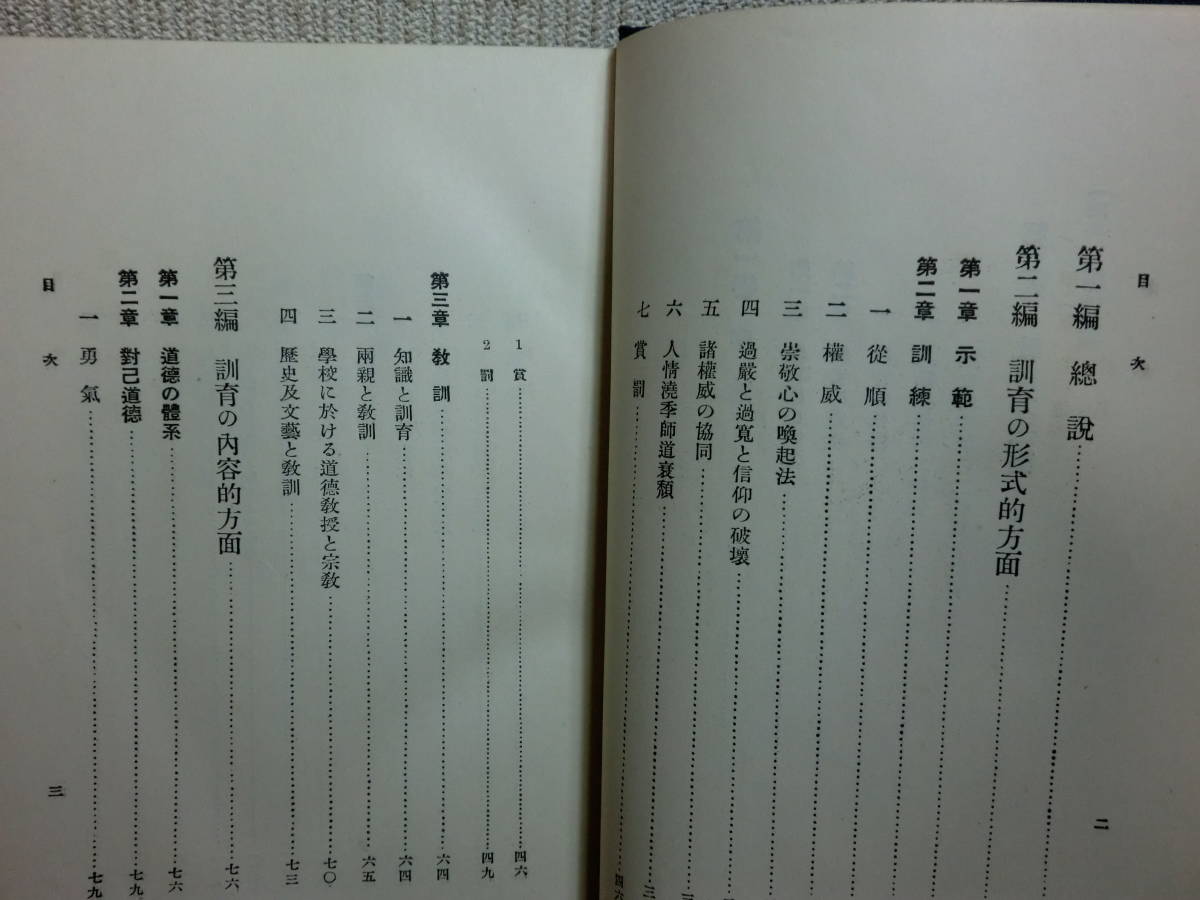 目次
第一編 總說
第二編 訓育の形式的方面
第一章 示範
第二章 訓練
一 從順
二 權威
三 崇敬心の喚起法
四 過嚴と過寬と信仰の破壞
五 諸權威の協同
六 人情澆季師道衰頽
七 賞罰 四六
二
1 賞 四六
2 罰 四九
第三章 敎訓 六四
一 知識と訓育 六四
二 兩親と敎訓 六五
三 學校に於ける道德敎授と宗敎 七〇
四 歷史及文藝と敎訓 七三
第三編 訓育の內容的方面 七六
第一章 道德の體系 七六
第二章 對己道德 七九
一 勇氣 七九
目次
三